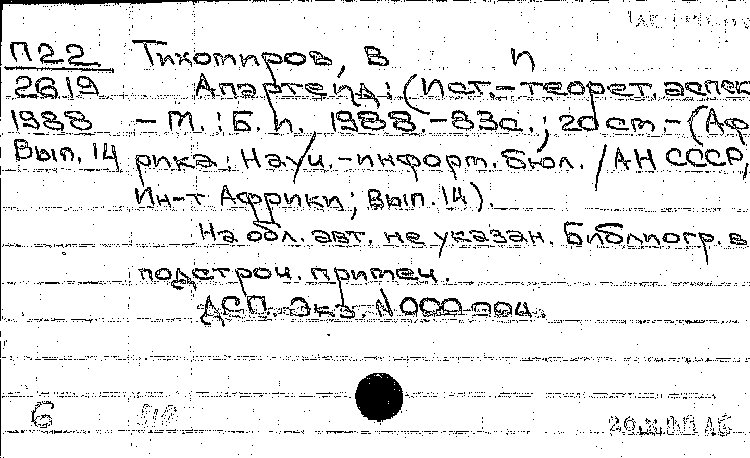 П22 Тихомиров, В П
2619 Апартеид: (Ист.-теорет. аспек
1988 - М.: Б. и. 1988. - 83с.; 20 см - (Аф
Вып. 14 рика: Науч.-информ. бюл. / АН СССР,
Ин-т Африки; Вып. 14).
На обл. авт. не указан. Библиогр. в
подстроч. примеч.
ДСП. Экз. N 000 004.
6